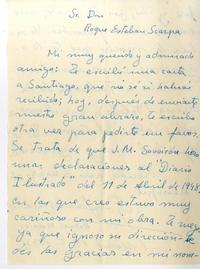 Sr. Don
Roque Esteban Scarpa
Mi muy querido y admirado
amigo: Te escribí una carta
a Santiago, que no sé si habrás
recibido; hoy, después de enviarte
nuestro gran abrazo, te escribo
otra vez para pedirte un favor.
Se trata de que J. M. Souvirón hizo
unas declaraciones al "Diario
Ilustrado" del 11 de Abril de 1948,
en las que creo estuvo muy
cariñoso con mi obra. Te ruego,
ya que ignoro su dirección, le
des las gracias en mi nom-